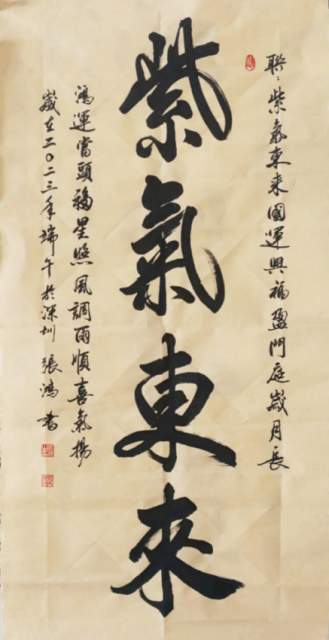 聯：紫氣東來國運興福盈門庭歲月長
紫氣東來
鴻運當頭福星照風調雨順喜氣揚
歲在二〇二三年端午於深圳 張鴻書